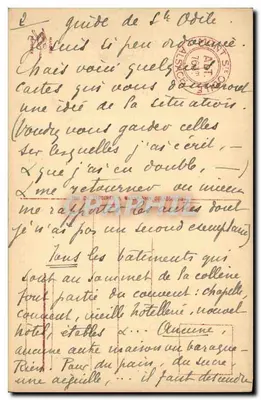 2 guide de Ste Odile
suis si peu ordonnée
Mais voici quelques
cartes qui vous donneront
une idée de la situation.
(Voudrez vous garder celles
sur lesquelles j'ai écrit, —
& que j'ai en double, —)
& me retourner ou mieux
me rapporter les unes dont
je n'ai pas un second exemplaire)
Tous les bâtiments qui
sont au sommet de la colline
font partie du couvent: chapelle
couvent, vieille hôtellerie, nouvel
hôtel étables &... Aucune,
aucune autre maison ou baraque
Rien Pour du pain, du sucre
une aiguille, ... il faut descendre